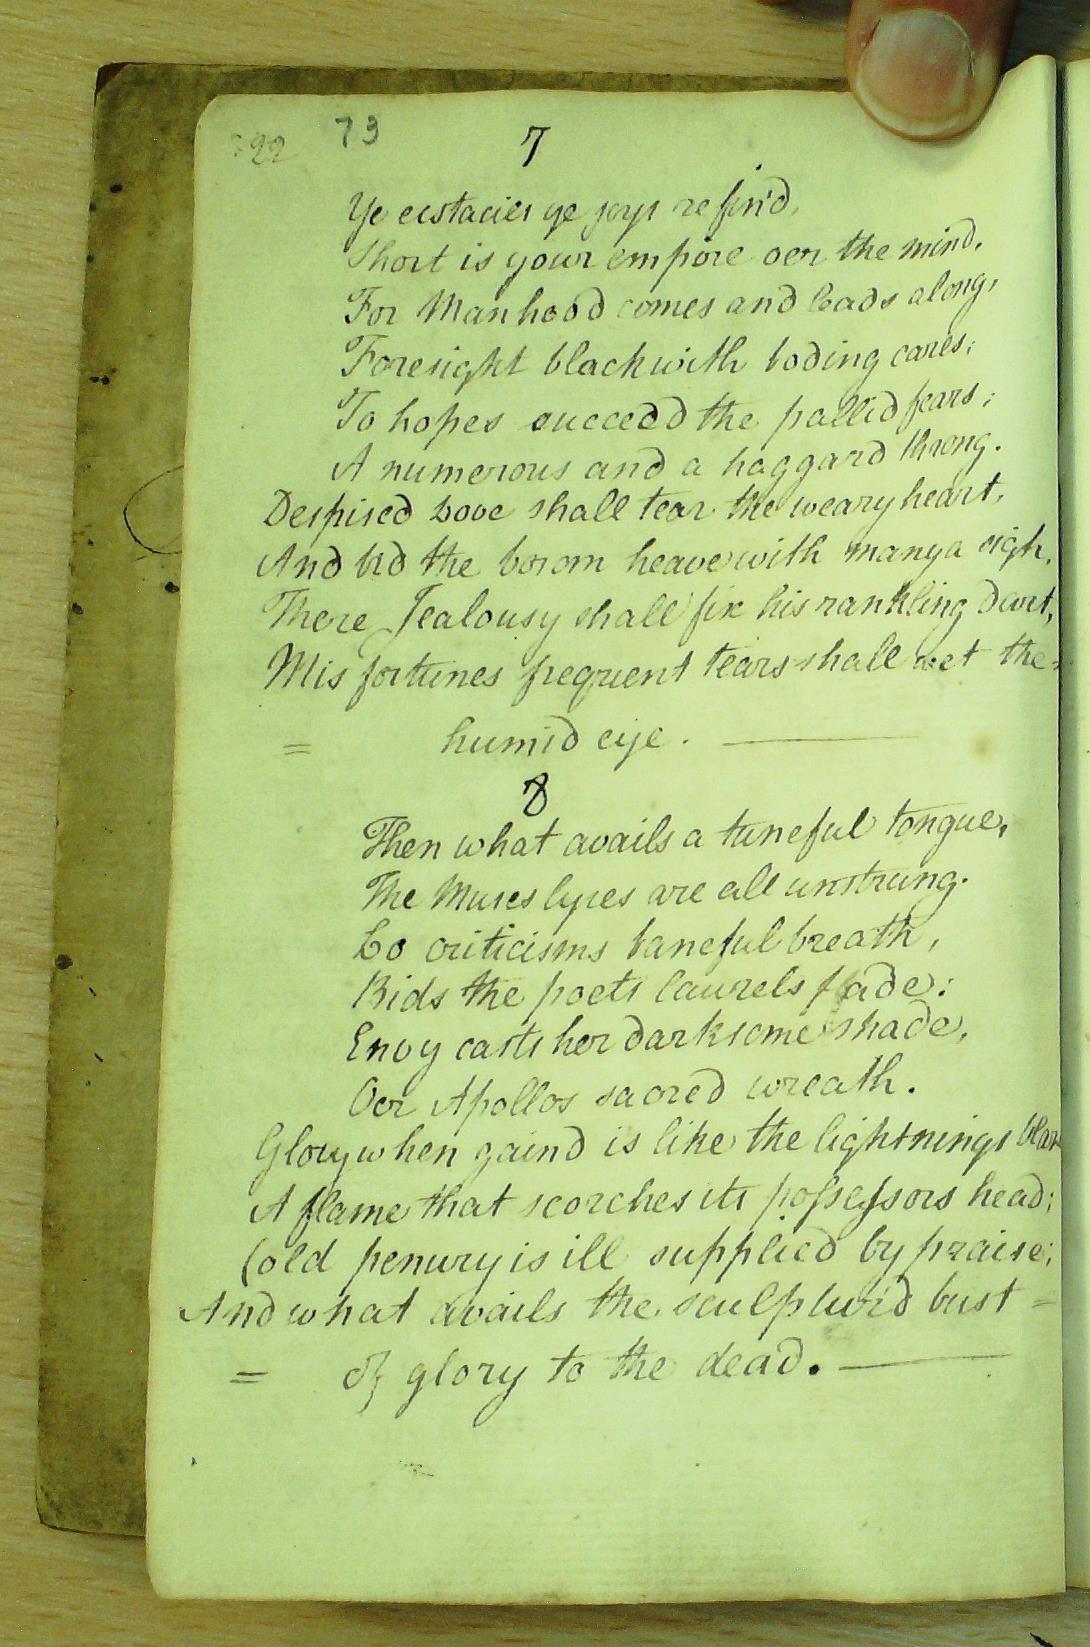 22 73
7
Ye ecstacies ye joys refin'd,
Short is your empire oer the mind,
For Manhood comes and leads along,
Foresight black with boding cares;
To hopes succeed the pallid fears;
A numerous and a haggard throng.
Despised Love shall tear the weary heart,
And bid the bosom heave with many a sigh,
There Jealousy shall fix his rankling dart,
Misfortunes frequent tears shall wet the=
= humid eye. —
8
Then what avails a tuneful tongue,
The Muses lyres are all unstrung.
Lo criticisms baneful breath,
Bids the poets laurels fade:
Envy casts her darksome shade,
Oer Apollos sacred wreath.
Glory when gaind is like the lightnings
A flame that scorches its possessors head;
Cold penury is ill supplied by praise;
And what avails the sculpturd bust =
= of glory to the dead. —